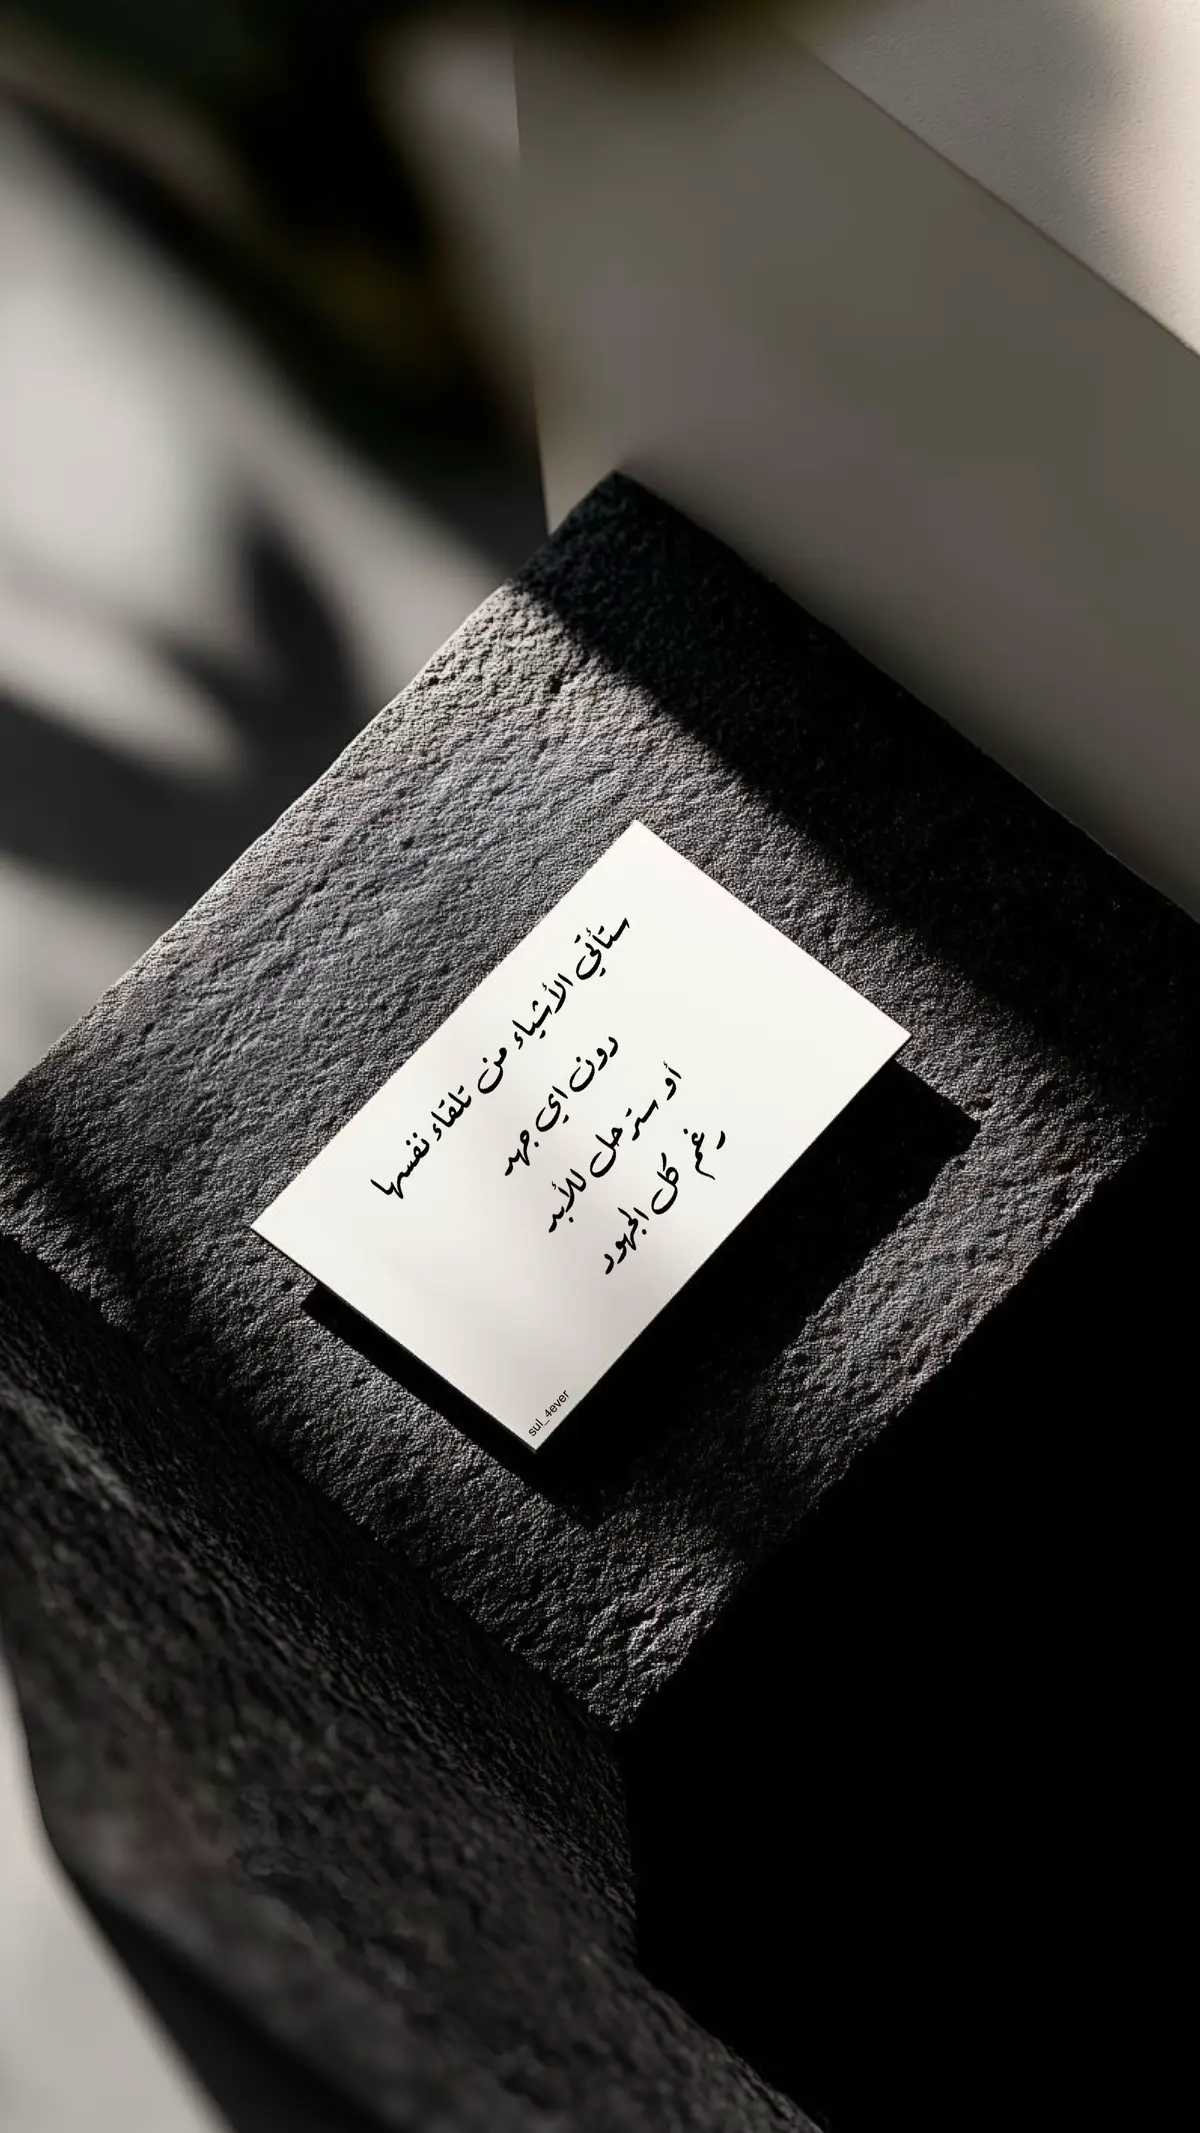 ستأتي الأشياء من تلقاء نفسها
دون اي جهد
أو سترحل للأبد
رغم كل الجهود
sul_4ever